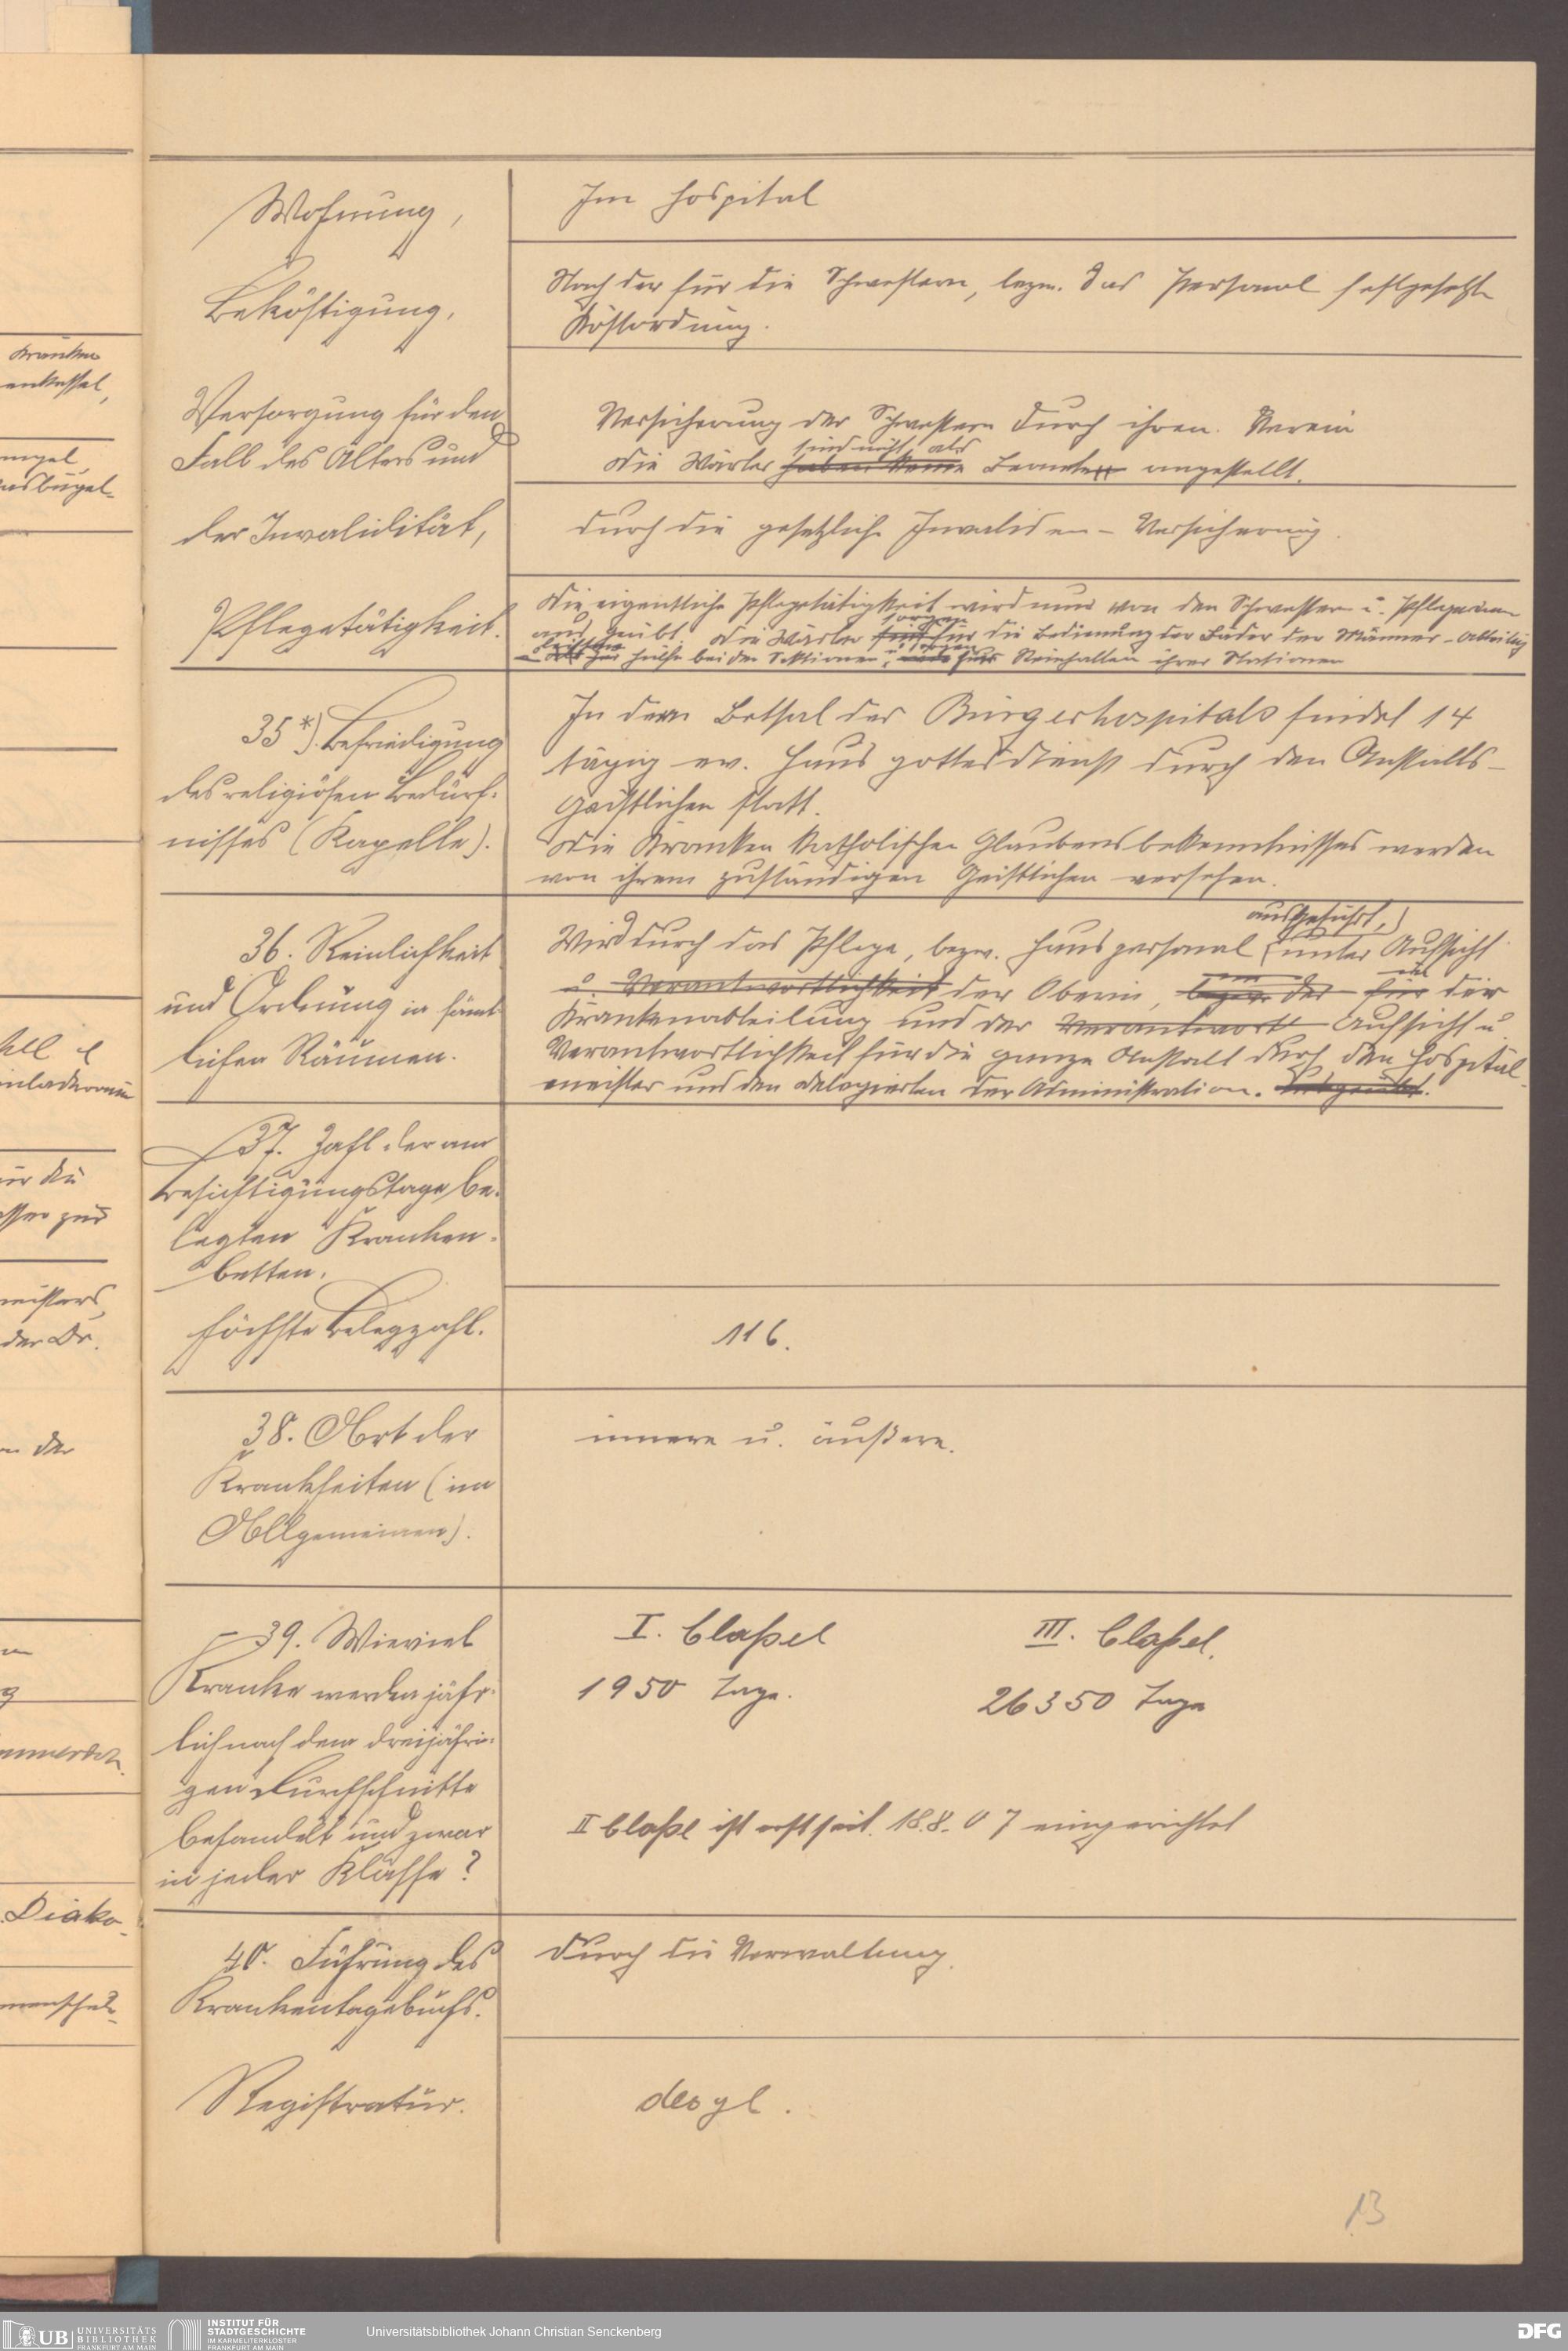 Wohnung,
Im Hospital
Beköstigung,
Nach der für die Schwestern, bezw. das Personal festgesetzte
Kostordnung.
Versorgung für den
Fall des Alters und
Versicherung der Schwestern durch ihren Verein
sind nicht als
Die Wärter haben keine Beamten angestellt.
der Invalidität,
durch die gesetzliche Invaliden-Versicherung.
Pflegetätigkeit.
Die eigentliche Pflegetätigkeit wird nur von den Schwestern u. Pflegerinnen
sorgen
ausgeübt. Die Wärter sind für die Bedienung der Bäder der Männer-Abteilung
u. sorgen
Hülfe bei den Sektionen, Reinhalten ihrer Stationen
35*). Befriedigung
des religiösen Bedürf-
nisses (Kapelle).
In dem Betsal des Bürgerhospitals findet 14
tägig ev. Haus gottesdienst durch den Anstalts-
geistlichen statt.
Die Kranken katholischen Glaubensbekenntnisses werden
von ihrem zuständigen Geistlichen versehen.
36. Reinlichkeit
und Ordnung in sämt-
lichen Räumen.
ausgeführt,
Wird durch das Pflege, bezw. Hauspersonal unter Aufsicht
u. Verantwortlichkeit der Oberin, bezw. der für die
Krankenabteilung und der Verantwort Aufsicht u
Verantwortlichkeit für die ganze Anstalt durch den Hospital-
meister und den Delegierten der Administration.
37. Zahl der am
Besichtigungstage be-
legten Kranken-
betten.
Höchste Belegzahl.
116.
38. Art der
Krankheiten (im
Allgemeinen).
innere u. äußere.
39. Wieviel
Kranke werden jähr-
lich nach dem dreijähri-
gen Durchschnitte
behandelt und zwar
in jeder Klasse?
I. Claßel III. Claßel.
1950 Tage. 26350 Tage
II Claße ist erst seit 18.8.07 eingerichtet
40. Führung des
Krankentagebuchs.
Durch die Verwaltung.
Registratur.
desgl.
13
Kranken
enkessel,
ngel
nsbügel-
Diako-
UB UNIVERSITÄTS
BIBLIOTHEK
FRANKFURT AM MAIN
INSTITUT FÜR
STADTGESCHICHTE
IM KARMELITERKLOSTER
FRANKFURT AM MAIN
Universitätsbibliothek Johann Christian Senckenberg
DFG